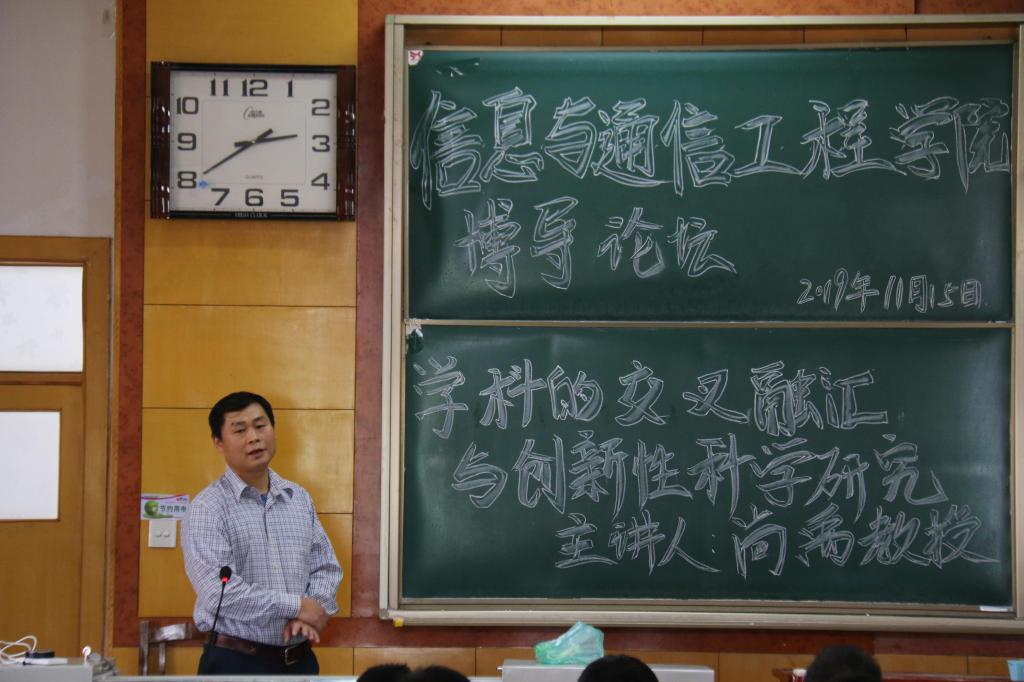 信息与通信工程学院
博导论坛
2019年11月15日
学科的交叉融汇
与创新性科学研究
主讲人:尚禹教授
11 12 1
10 2
9 3
8 4
7 6 5
QUARTZ
HIGH CLOCK
节约用电